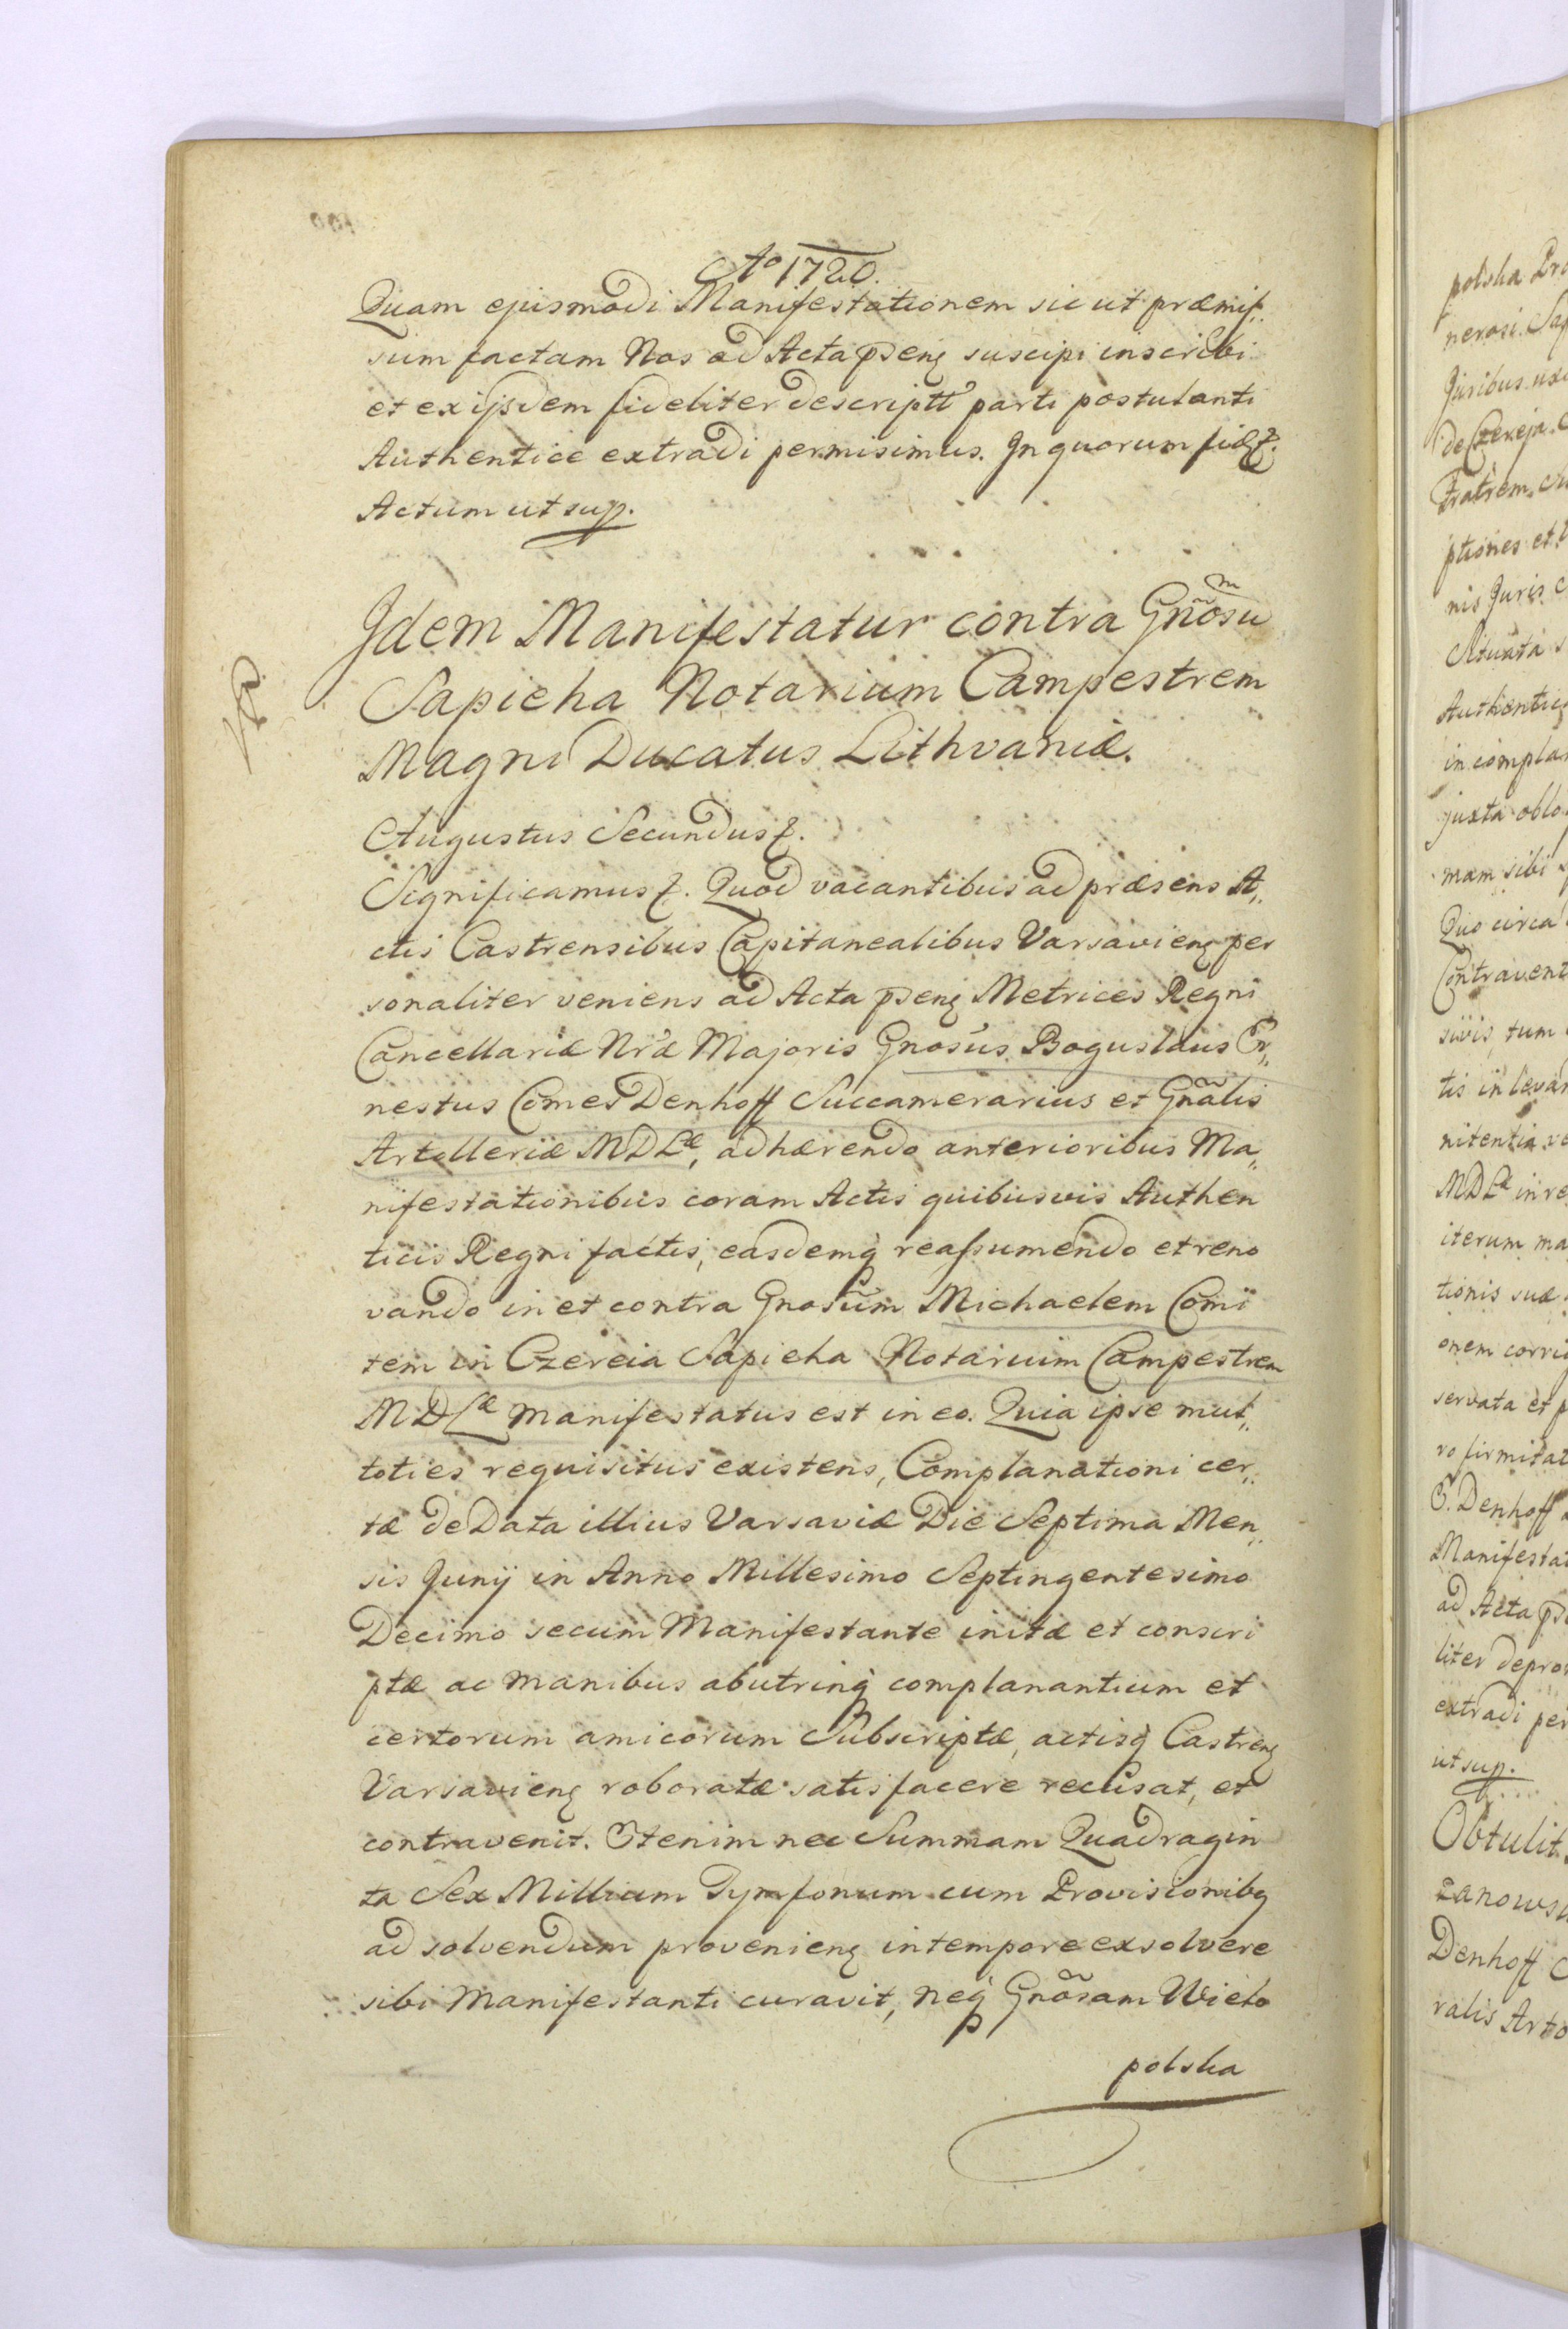 Ao 1720.
Quam ejusmodi Manifestationem sic ut præmis„
sum factam Nos ad Acta pñseng suscipi inscribi
et ex ijsdem fideliter descriptã parti postulanti
Authentice extradi permisimus. In quorum fidę
Actum ut sup.
Idem Manifestatur contra Gnõsum
Sapieha Notarium Campestrem
Magni Ducatus Lithvaniæ.
Augustus Secundus
Significamus Quod vacantibus ad præsens A„
ctis Castrensibus Capitanealibus Varsavieng per
sonaliter veniens ad Acta pñseng Metrices Regni
Cancellariæ Nræ Majoris Gnosus Boguslaus Er„
nestus Comes Denhoff Succamerarius et Gnãlis
Artilleriæ MDLæ, adhærendo anterioribus Ma„
nifestationibus coram Actis quibusvis Authen
ticis Regni factis, easdemq reassumendo et reno
vando in et contra Gnosum Michaelem Comi
tem in Czereia Sapieha Notarium Campestrem
MDLæ manifestatus est in eo. Quia ipse mul„
toties requisitus existens, Complanationi cer„
tæ de Data illius Varsaviæ Die Septima Men„
sis Junij in Anno Millesimo Septingentesimo
Decimo secum Manifestante initæ et conscri
ptæ ac manibus abutrinq complanantium et
certorum amicorum Subscriptæ, actisq Castreng
Varsavieng roboratæ satisfacere recusat, et
contravenit. Etenim nec Summam Quadragin
ta Sex Millium Tymfonum cum Provisionibg
ad solvendum provenieng in tempore exsolvere
sibi Manifestanti curavit, neq Gnõsam Wielo
polska
polska
nerosi. Sap
Juribus
de Czereja.
Fratrem,
ptiones et
nis Juris
Authentic
in compla
juxta oblo
mam sibi
Quo circa
Contravent
suis, tum
tis in leva
nitentia
MDLæ in re
iterum ma
tionis suæ
onem corri
servata et
ro firmitat
Denhoff
Manifesta
ad Acta
liter
extradi per
ut sup.
Obtulit
Denhoff
ralis Art